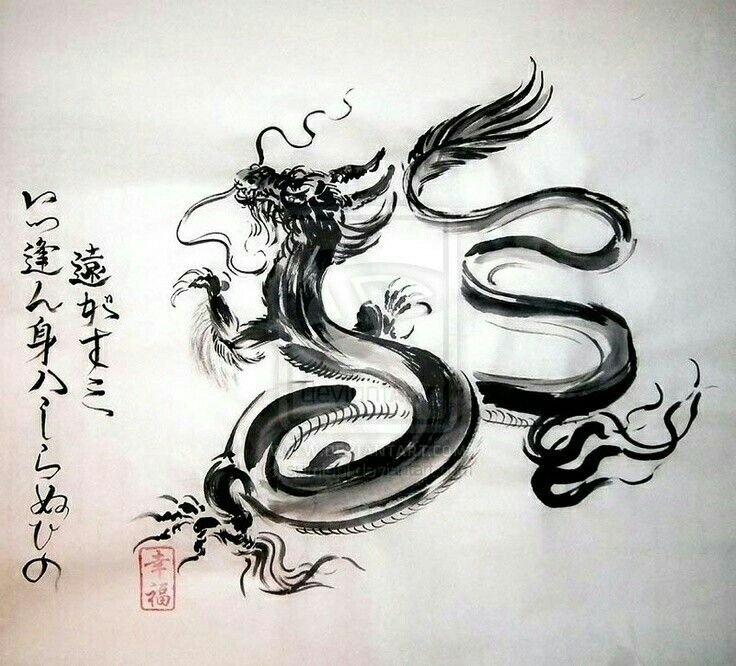 いつ逢ん身ハしらぬひの
遠がすミ
幸福
deviantART.COM